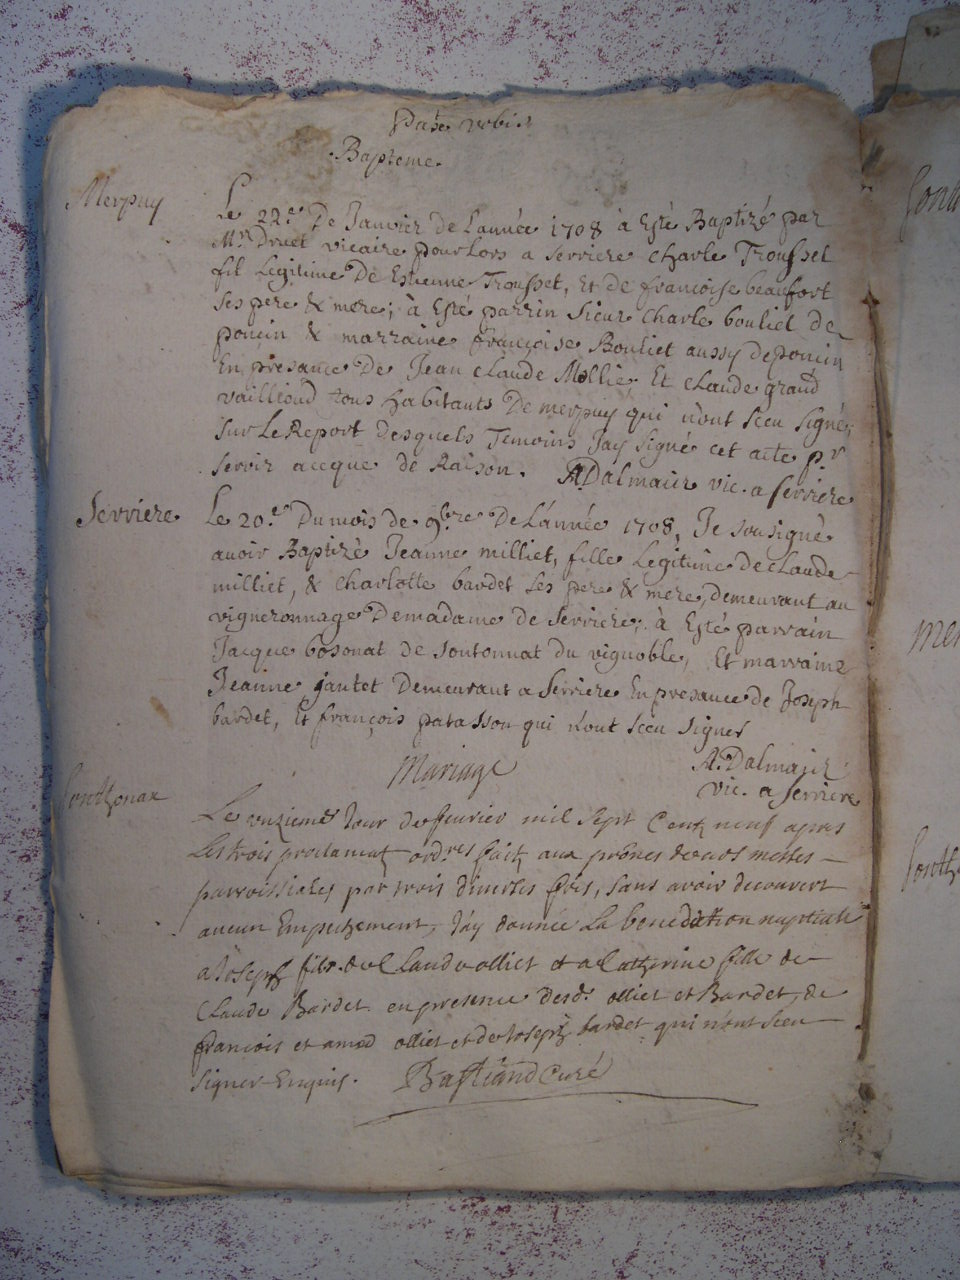 Bapteme
Merpuy
Le 22.e De Janvier de L'année 1708 à Esté Baptizé par
Mr Druet vicaire pour Lors a Serriere Charle Trousset
fil Legitime De Estienne Trousset, Et de francoise beaufort
Ses pere & mere; à Esté parrin Sieur Charle bouliet de
poncin & marraine françoise Bouliet aussy de poncin
En presance De Jean Claude Mollie Et Claude grand
vaillioud tous habitants De merpuy qui n'ont sceu signé,
sur Le Report desquels Temoins J'ay signé cet acte pr
servir acque de Raison. A. Dalmaiz vic. a serriere
Serriere
Le 20.e Du mois de 9bre De L'année 1708, Je sousigné
avoir Baptizé Jeanne milliet, fille Legitime de Claude
milliet, & Charlotte bardet ses pere & mere, demeurant au
vigneronnage De madame de Serriere; à Esté parrain
Jacque bosonat de soutonnat du vignoble, Et marraine
Jeanne jantet Demeurant a Serriere En presance de Joseph
bardet, Et françois patasson qui n'ont sceu signer
A. Dalmaiz
vic. a serriere
Mariage
Le onzieme Jour de feuvrier mil Sept Centz neuf apres
Les trois proclamatz ordres faitz aux prônes de nos messes
parroissiales par trois diverses fois, sans avoir decouvert
aucun Empechement, J'ay donnée La benediction nuptiale
a Joseph filz de Claude olliet et a Catherine fille de
Claude Bardet en presence desd. olliet et Bardet, de
francois et amed olliet et de Joseph bardet qui n'ont sceu
signer Enquis. Bastiand Curé